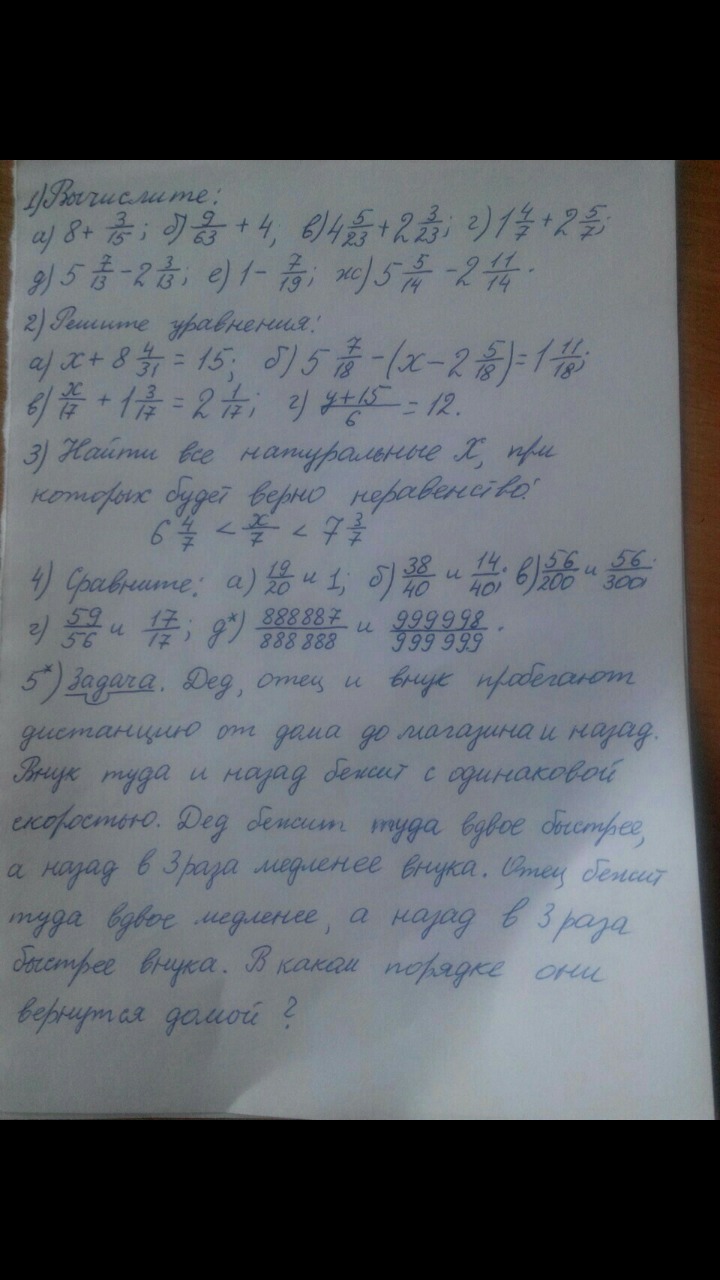 1) Вычислите:
а) 8 + 3/15; б) 9/63 + 4; в) 4 5/23 + 2 3/23; г) 1 4/7 + 2 5/7;
д) 5 7/13 − 2 3/13; е) 1 − 7/19; ж) 5 5/14 − 2 11/14.
2) Решите уравнения:
а) x + 8 4/31 = 15; б) 5 7/18 − (x − 2 5/18) = 1 11/18;
в) x/17 + 1 3/17 = 2 1/17; г) y+15/6 = 12.
3) Найти все натуральные X, при
которых будет верно неравенство:
6 4/7 < x/7 < 7 3/7
4) Сравните: а) 19/20 и 1; б) 38/40 и 14/40; в) 56/200 и 56/300;
г) 59/56 и 17/17; д*) 888887/888888 и 999998/999999.
5*) Задача. Дед, отец и внук пробегают
дистанцию от дома до магазина и назад.
Внук туда и назад бежит с одинаковой
скоростью. Дед бежит туда вдвое быстрее,
а назад в 3 раза медленее внука. Отец бежит
туда вдвое медленее, а назад в 3 раза
быстрее внука. В каком порядке они
вернутся домой?